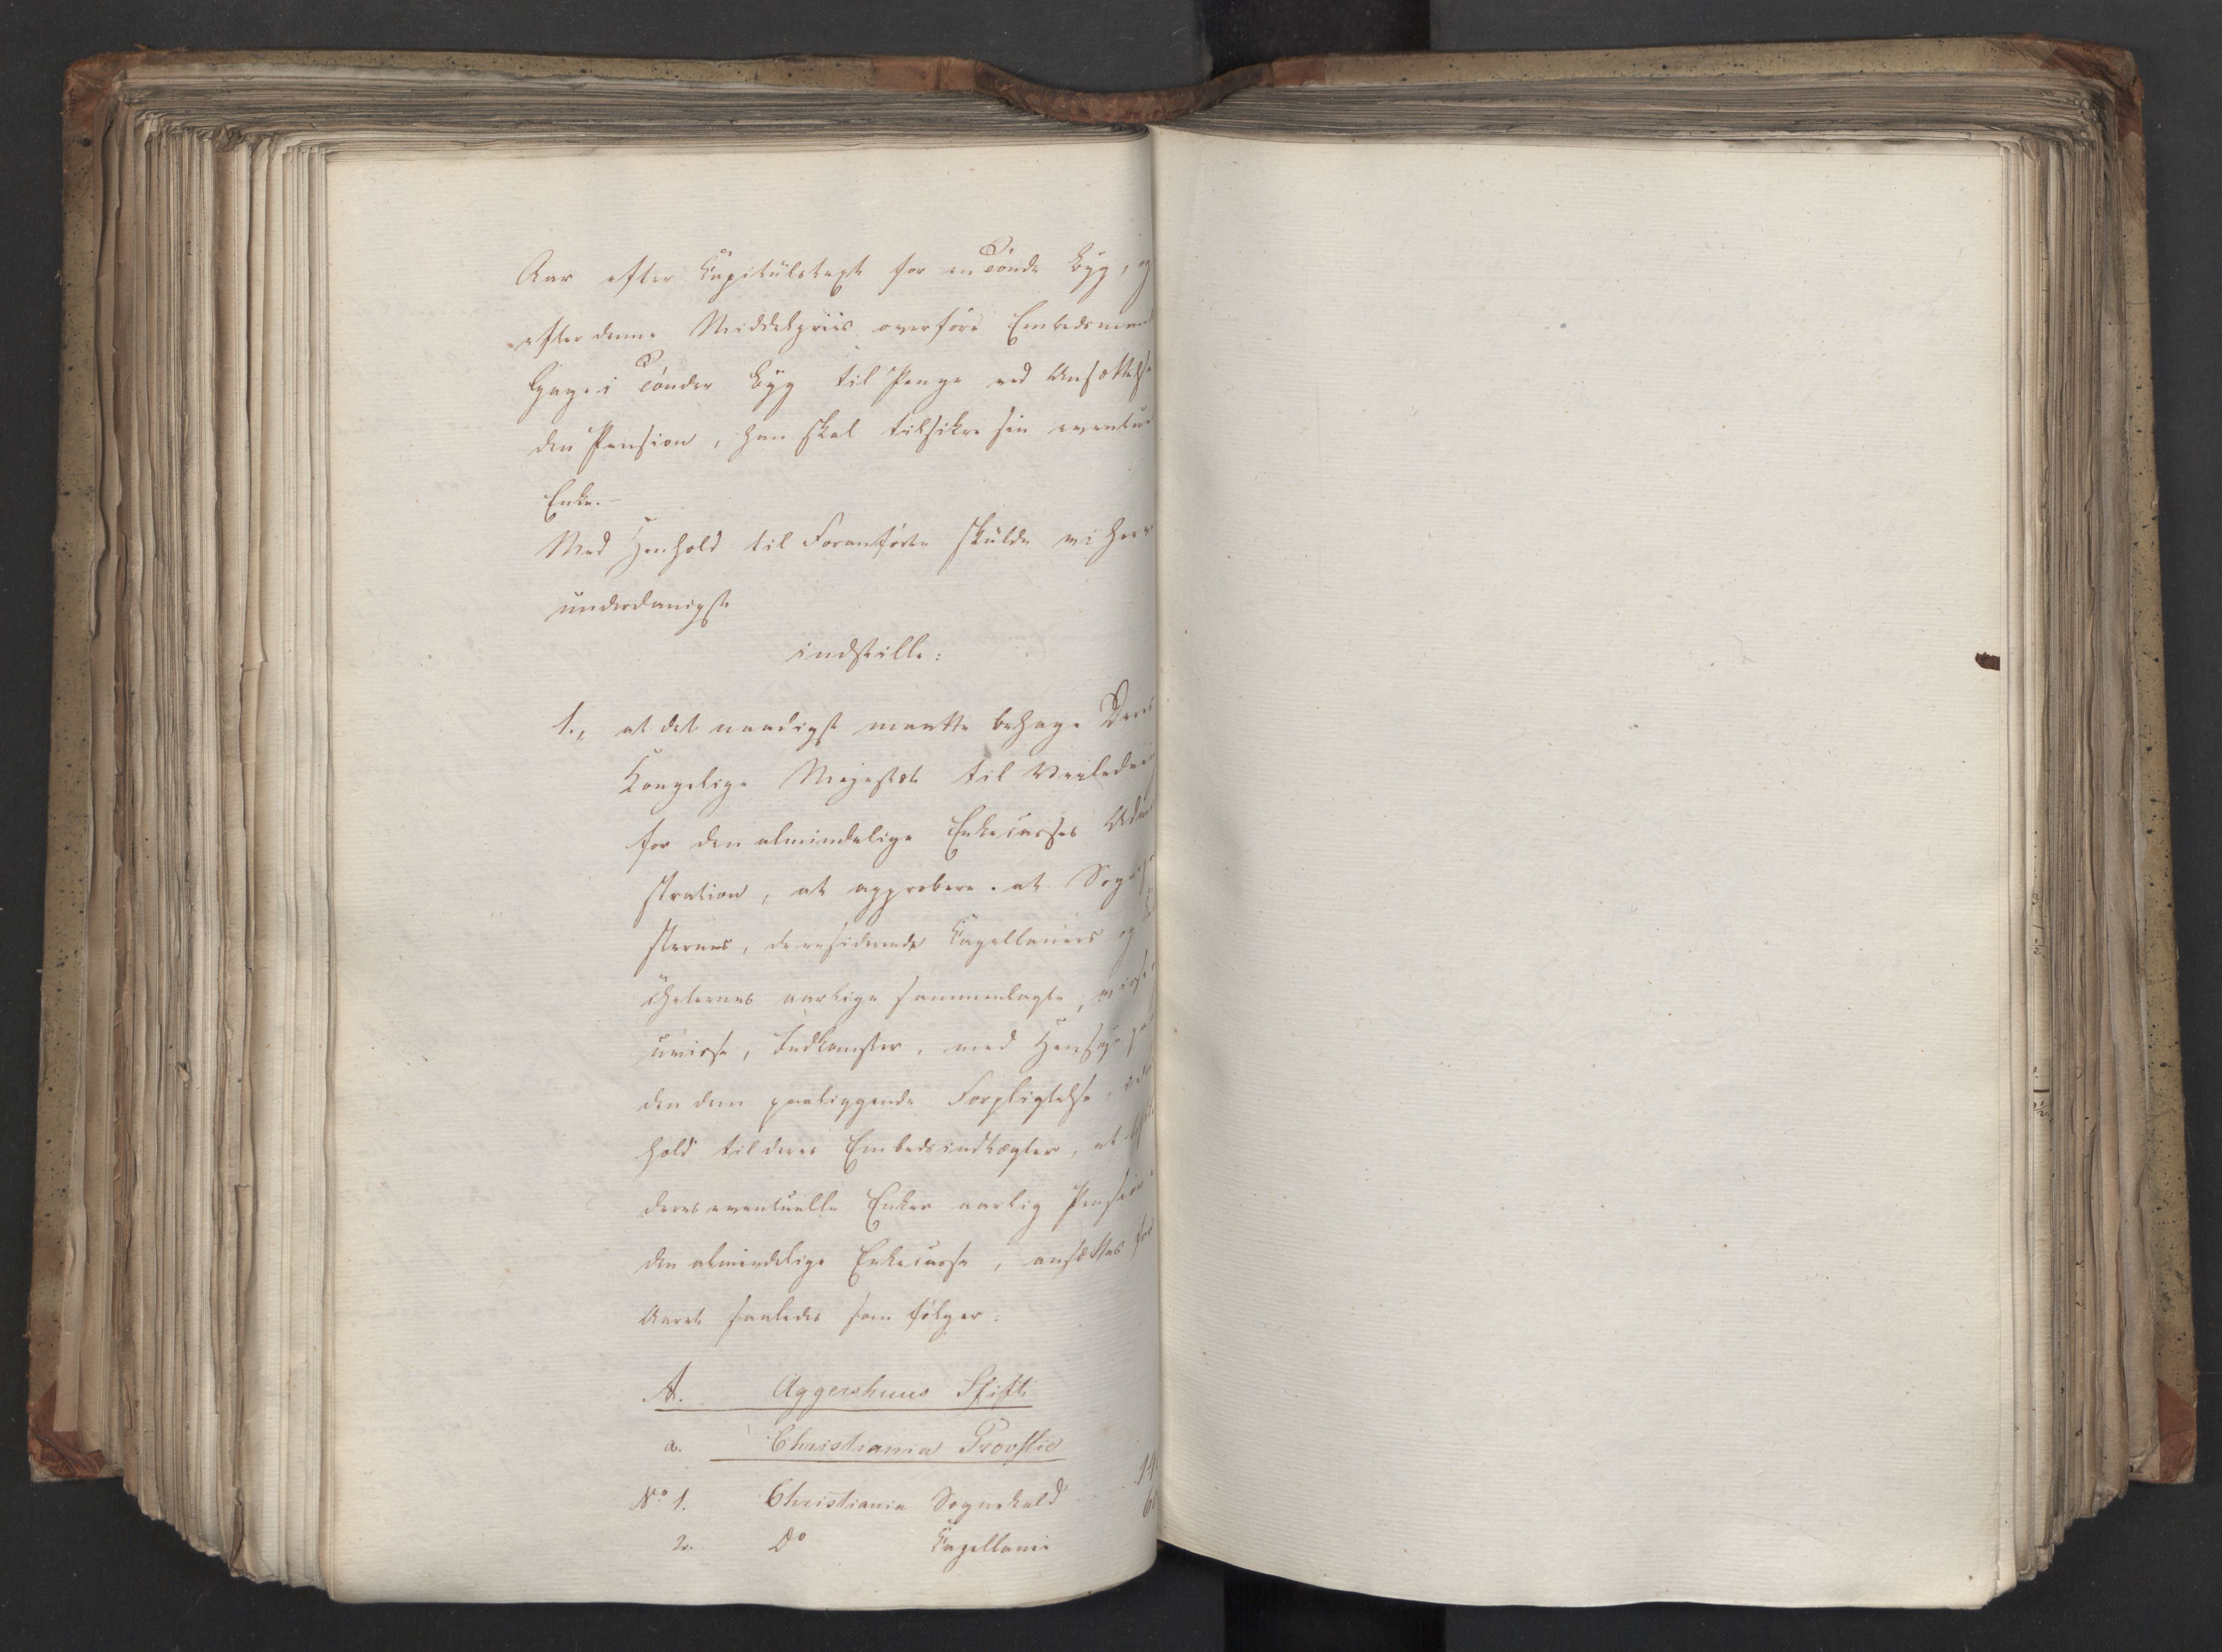 Aar efter Kapitülstaxt for en Tönde Byg, og
efter denne Middelpriis overföre Embedsmand
Gage i Tönder Byg til Penge ved Ansættelse
den Pension, han skal tilsikre sin eventue
Enke. –
Med Henhold til Foranförte skülde vi herv
ünderdanigst
indstille:
1., at det naadigst maatte behage Deres
Kongelige Majestæt til Veiledni
for den almindelige Enkecasses Admi
stration, at approbere at Sognepræ
sternes, de residerende Capellaners og
 aarlige sammenlagte, visse
üvisse, Indkomster, med Hensyn paa
den dem paaliggende Forpligtelse, i
hold til deres Embedsindtægter, at
deres eventuelle Enker aarlig Pension i
den almindelige Enkecasse, ansættes for
Aaret saaledes som fölger:
A. Aggershuus Stift
a. Christiania Provstie
No 1. Christiania Sognekald 14
2. Do Capellanie 60